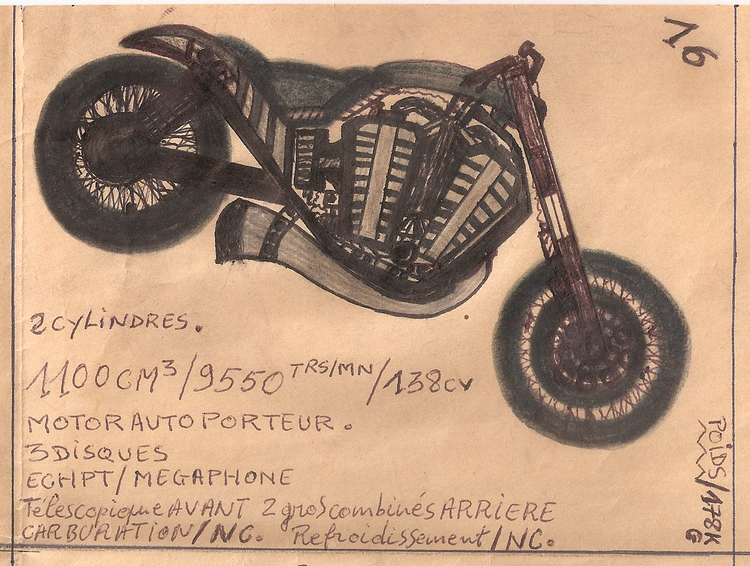 16
2CYLiNDRES.
1100CM³/9550 TRS/MN/138cv
MOTOR AUTO PORTEUR.
3DiSQUES
ECHPT/MEGAPHONE
Télescopique AVANT 2 gros combinés ARRIERE
CARBURATION/NC. Refroidissement/NC.
POiDS/178KG